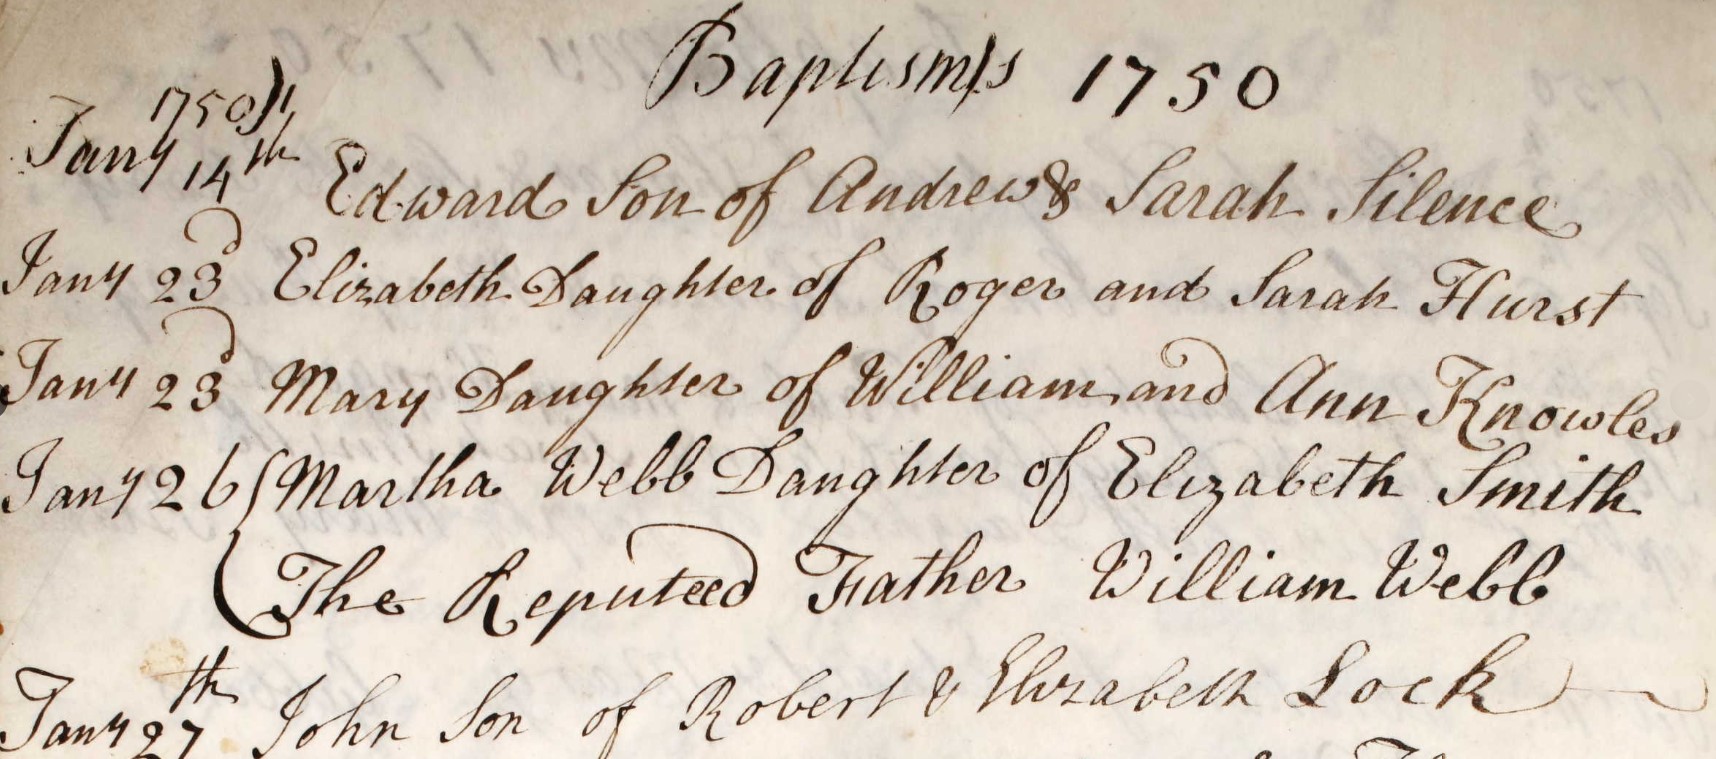 Baptism/s 1750
1750/1
Jany 14th Edward Son of Andrew & Sarah Silence
Jany 23d Elizabeth Daughter of Roger and Sarah Hurst
Jany 23d Mary Daughter of William and Ann Knowles
Jany 26 Martha Webb Daughter of Elizabeth Smith
The Reputeed Father William Webb
Jany 27th John Son of Robert & Elizabeth Lock